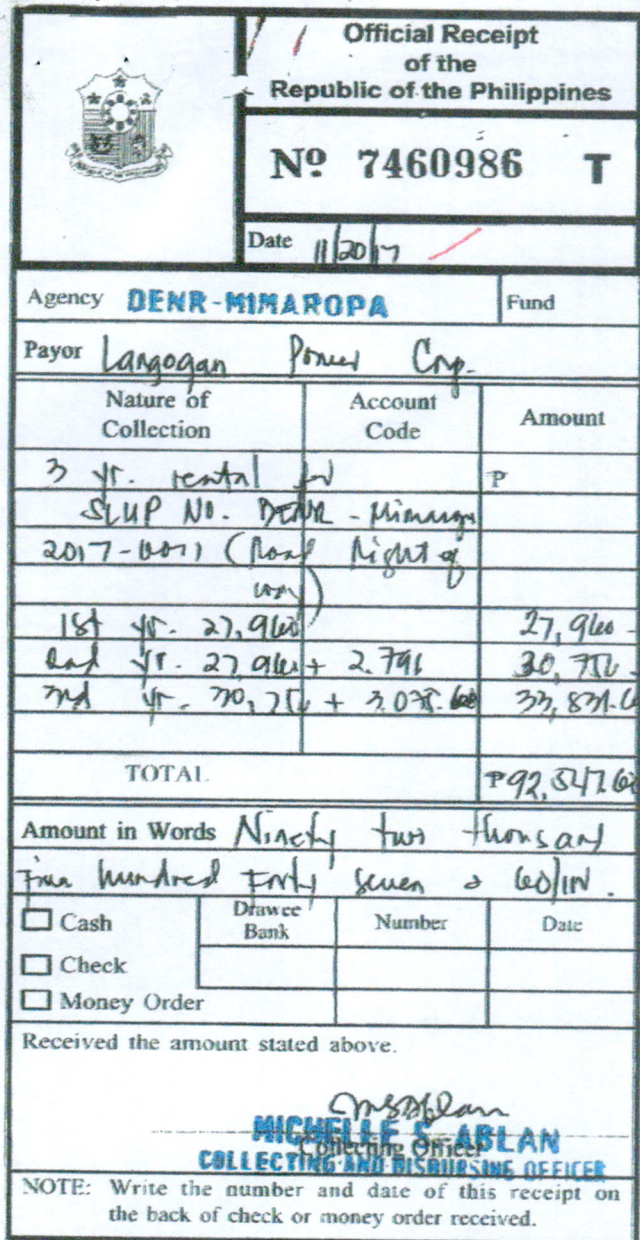 Official Receipt
of the
Republic of the Philippines
Nº 7460986 T
Date 11/20/17
Agency DENR-MIMAROPA Fund
Payor Langogan Power Corp.
Nature of Collection Account Code Amount
3 yr. rental for ₱
SLUP No. DENR - Mimaropa
2017-0011 (Road Right of
way)
1st yr. 27,960 27,960 -
2nd yr. 27,960 + 2,796 30,756 -
3rd yr. 30,756 + 3,075.60 33,831.6
TOTAL ₱92,547.60
Amount in Words Ninety two thousand
five hundred forty seven & 60/100.
Cash Drawee Bank Number Date
Check
Money Order
Received the amount stated above.
MICHELLE S. ABLAN
Collecting Officer
COLLECTING AND DISBURSING OFFICER
NOTE: Write the number and date of this receipt on
the back of check or money order received.